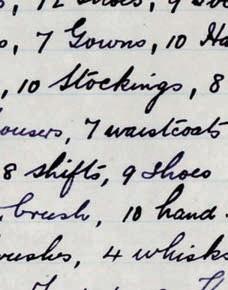 s, 12 shoes, 9
s, 7 Gowns, 10 Ha
, 10 Stockings, 8
ousers, 7 waistcoats
8 shifts, 9 shoes
brush, 10 hand
ushes, 4 whisks